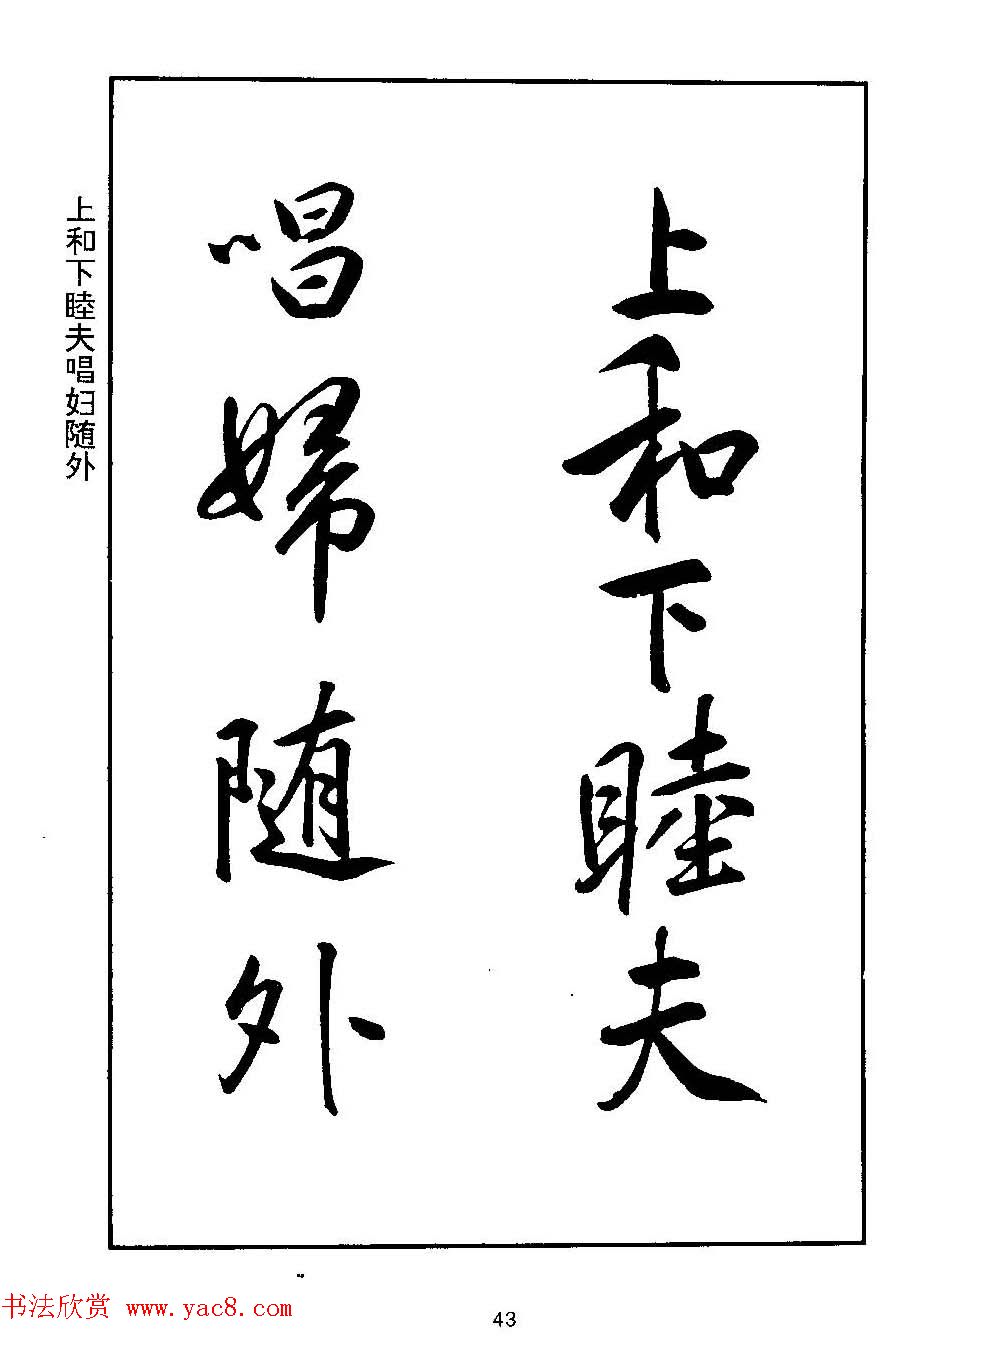 上和下睦夫
唱婦随外
上和下睦夫唱妇随外
书法欣赏 www.yac8.com
43